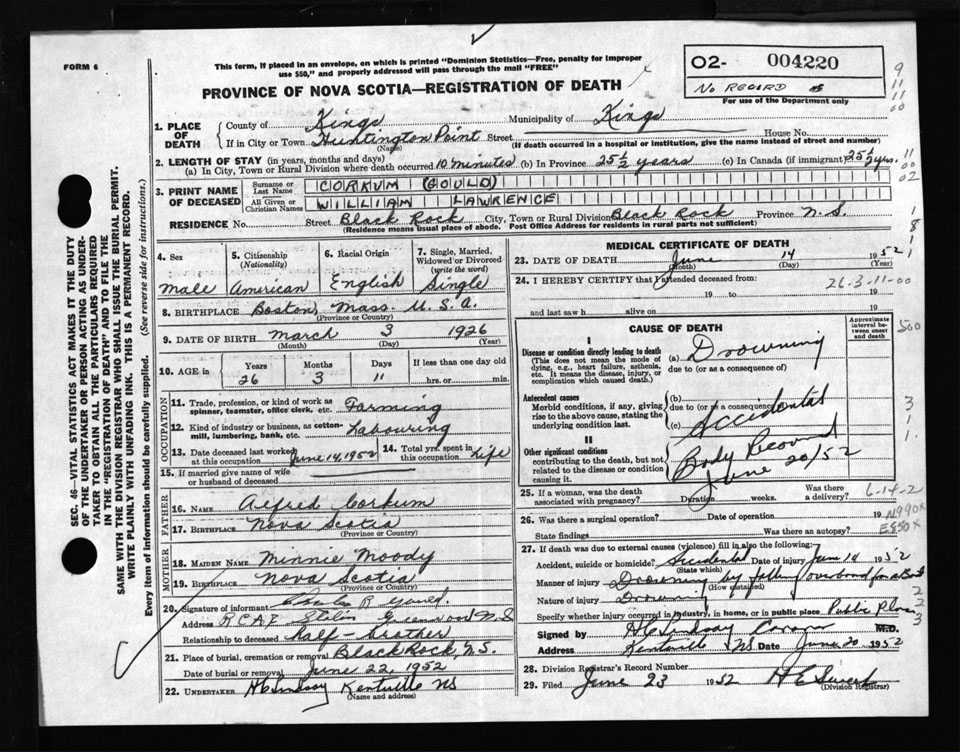 FORM 6
This form, if placed in an envelope, on which is printed "Dominion Statistics—Free, penalty for improper
use $50," and properly addressed will pass through the mail "FREE"
PROVINCE OF NOVA SCOTIA—REGISTRATION OF DEATH
O2- 004220
No RECORD
For use of the Department only
1. PLACE OF DEATH
County of Kings Municipality of Kings
If in City or Town Huntington Point Street House No.
(Name) (If death occurred in a hospital or institution, give the name instead of street and number)
2. LENGTH OF STAY (in years, months and days)
(a) In City, Town or Rural Division where death occurred 10 minutes (b) In Province 25½ years (c) In Canada (if immigrant) 25½ yrs.
3. PRINT NAME OF DECEASED
Surname or Last Name CORKUM (GOULD)
All Given or Christian Names WILLIAM LAWRENCE
RESIDENCE No. Street Black Rock City, Town or Rural Division Black Rock Province N.S.
(Residence means usual place of abode. Post Office Address for residents in rural parts not sufficient)
4. Sex
male
5. Citizenship (Nationality)
American
6. Racial Origin
English
7. Single, Married, Widowed or Divorced (write the word)
Single
8. BIRTHPLACE Boston, Mass. U.S.A.
(Province or Country)
9. DATE OF BIRTH March 3 1926
(Month) (Day) (Year)
10. AGE in Years Months Days If less than one day old
26 3 11 hrs. or min.
OCCUPATION
11. Trade, profession, or kind of work as spinner, teamster, office clerk, etc. Farming
12. Kind of industry or business, as cotton-mill, lumbering, bank, etc. Labouring
13. Date deceased last worked at this occupation June 14, 1952 14. Total yrs. spent in this occupation Life
15. If married give name of wife or husband of deceased
FATHER
16. NAME Alfred Corkum
17. BIRTHPLACE Nova Scotia
(Province or Country)
MOTHER
18. MAIDEN NAME Minnie Moody
19. BIRTHPLACE Nova Scotia
(Province or Country)
20. Signature of informant Charles R Gould
Address R.C.A.F. Station Greenwood N.S
Relationship to deceased half-brother
21. Place of burial, cremation or removal Black Rock, N.S.
Date of burial or removal June 22, 1952
22. UNDERTAKER H C Lindsay Kentville NS
(Name and address)
MEDICAL CERTIFICATE OF DEATH
23. DATE OF DEATH June 14 1952
(Month) (Day) (Year)
24. I HEREBY CERTIFY that I attended deceased from:
26-3-11-00
19 to 19
and last saw h alive on 19
CAUSE OF DEATH
Approximate interval between onset and death
I
Disease or condition directly leading to death
(This does not mean the mode of dying, e.g., heart failure, asthenia, etc. It means the disease, injury, or complication which caused death.)
(a) Drowning
due to (or as a consequence of)
Antecedent causes
Morbid conditions, if any, giving rise to the above cause, stating the underlying condition last.
(b)
due to (or as a consequence of)
(c) Accidental
II
Other significant conditions contributing to the death, but not related to the disease or condition causing it.
Body Recovered
June 20/52
25. If a woman, was the death associated with pregnancy? Duration weeks. Was there a delivery?
6-14-2
26. Was there a surgical operation? Date of operation 19
N990X
State findings Was there an autopsy?
E850X
27. If death was due to external causes (violence) fill in also the following:
Accident, suicide or homicide? Accidental Date of injury June 14 1952
(State which)
Manner of injury Drowning by falling overboard from a Boat
(How sustained)
Nature of injury Drowning
Specify whether injury occurred in industry, in home, or in public place Public Place
Signed by H C Lindsay Coroner M.D.
Address Kentville NS Date June 20 1952
28. Division Registrar's Record Number
29. Filed June 23 1952
(Division Registrar)
SEC. 46—VITAL STATISTICS ACT MAKES IT THE DUTY
OF THE UNDERTAKER OR PERSON ACTING AS UNDER-
TAKER TO OBTAIN ALL THE PARTICULARS REQUIRED
IN THE "REGISTRATION OF DEATH" AND TO FILE THE
SAME WITH THE DIVISION REGISTRAR WHO SHALL ISSUE THE BURIAL PERMIT.
WRITE PLAINLY WITH UNFADING INK. THIS IS A PERMANENT RECORD.
Every item of information should be carefully supplied. (See reverse side for instructions.)